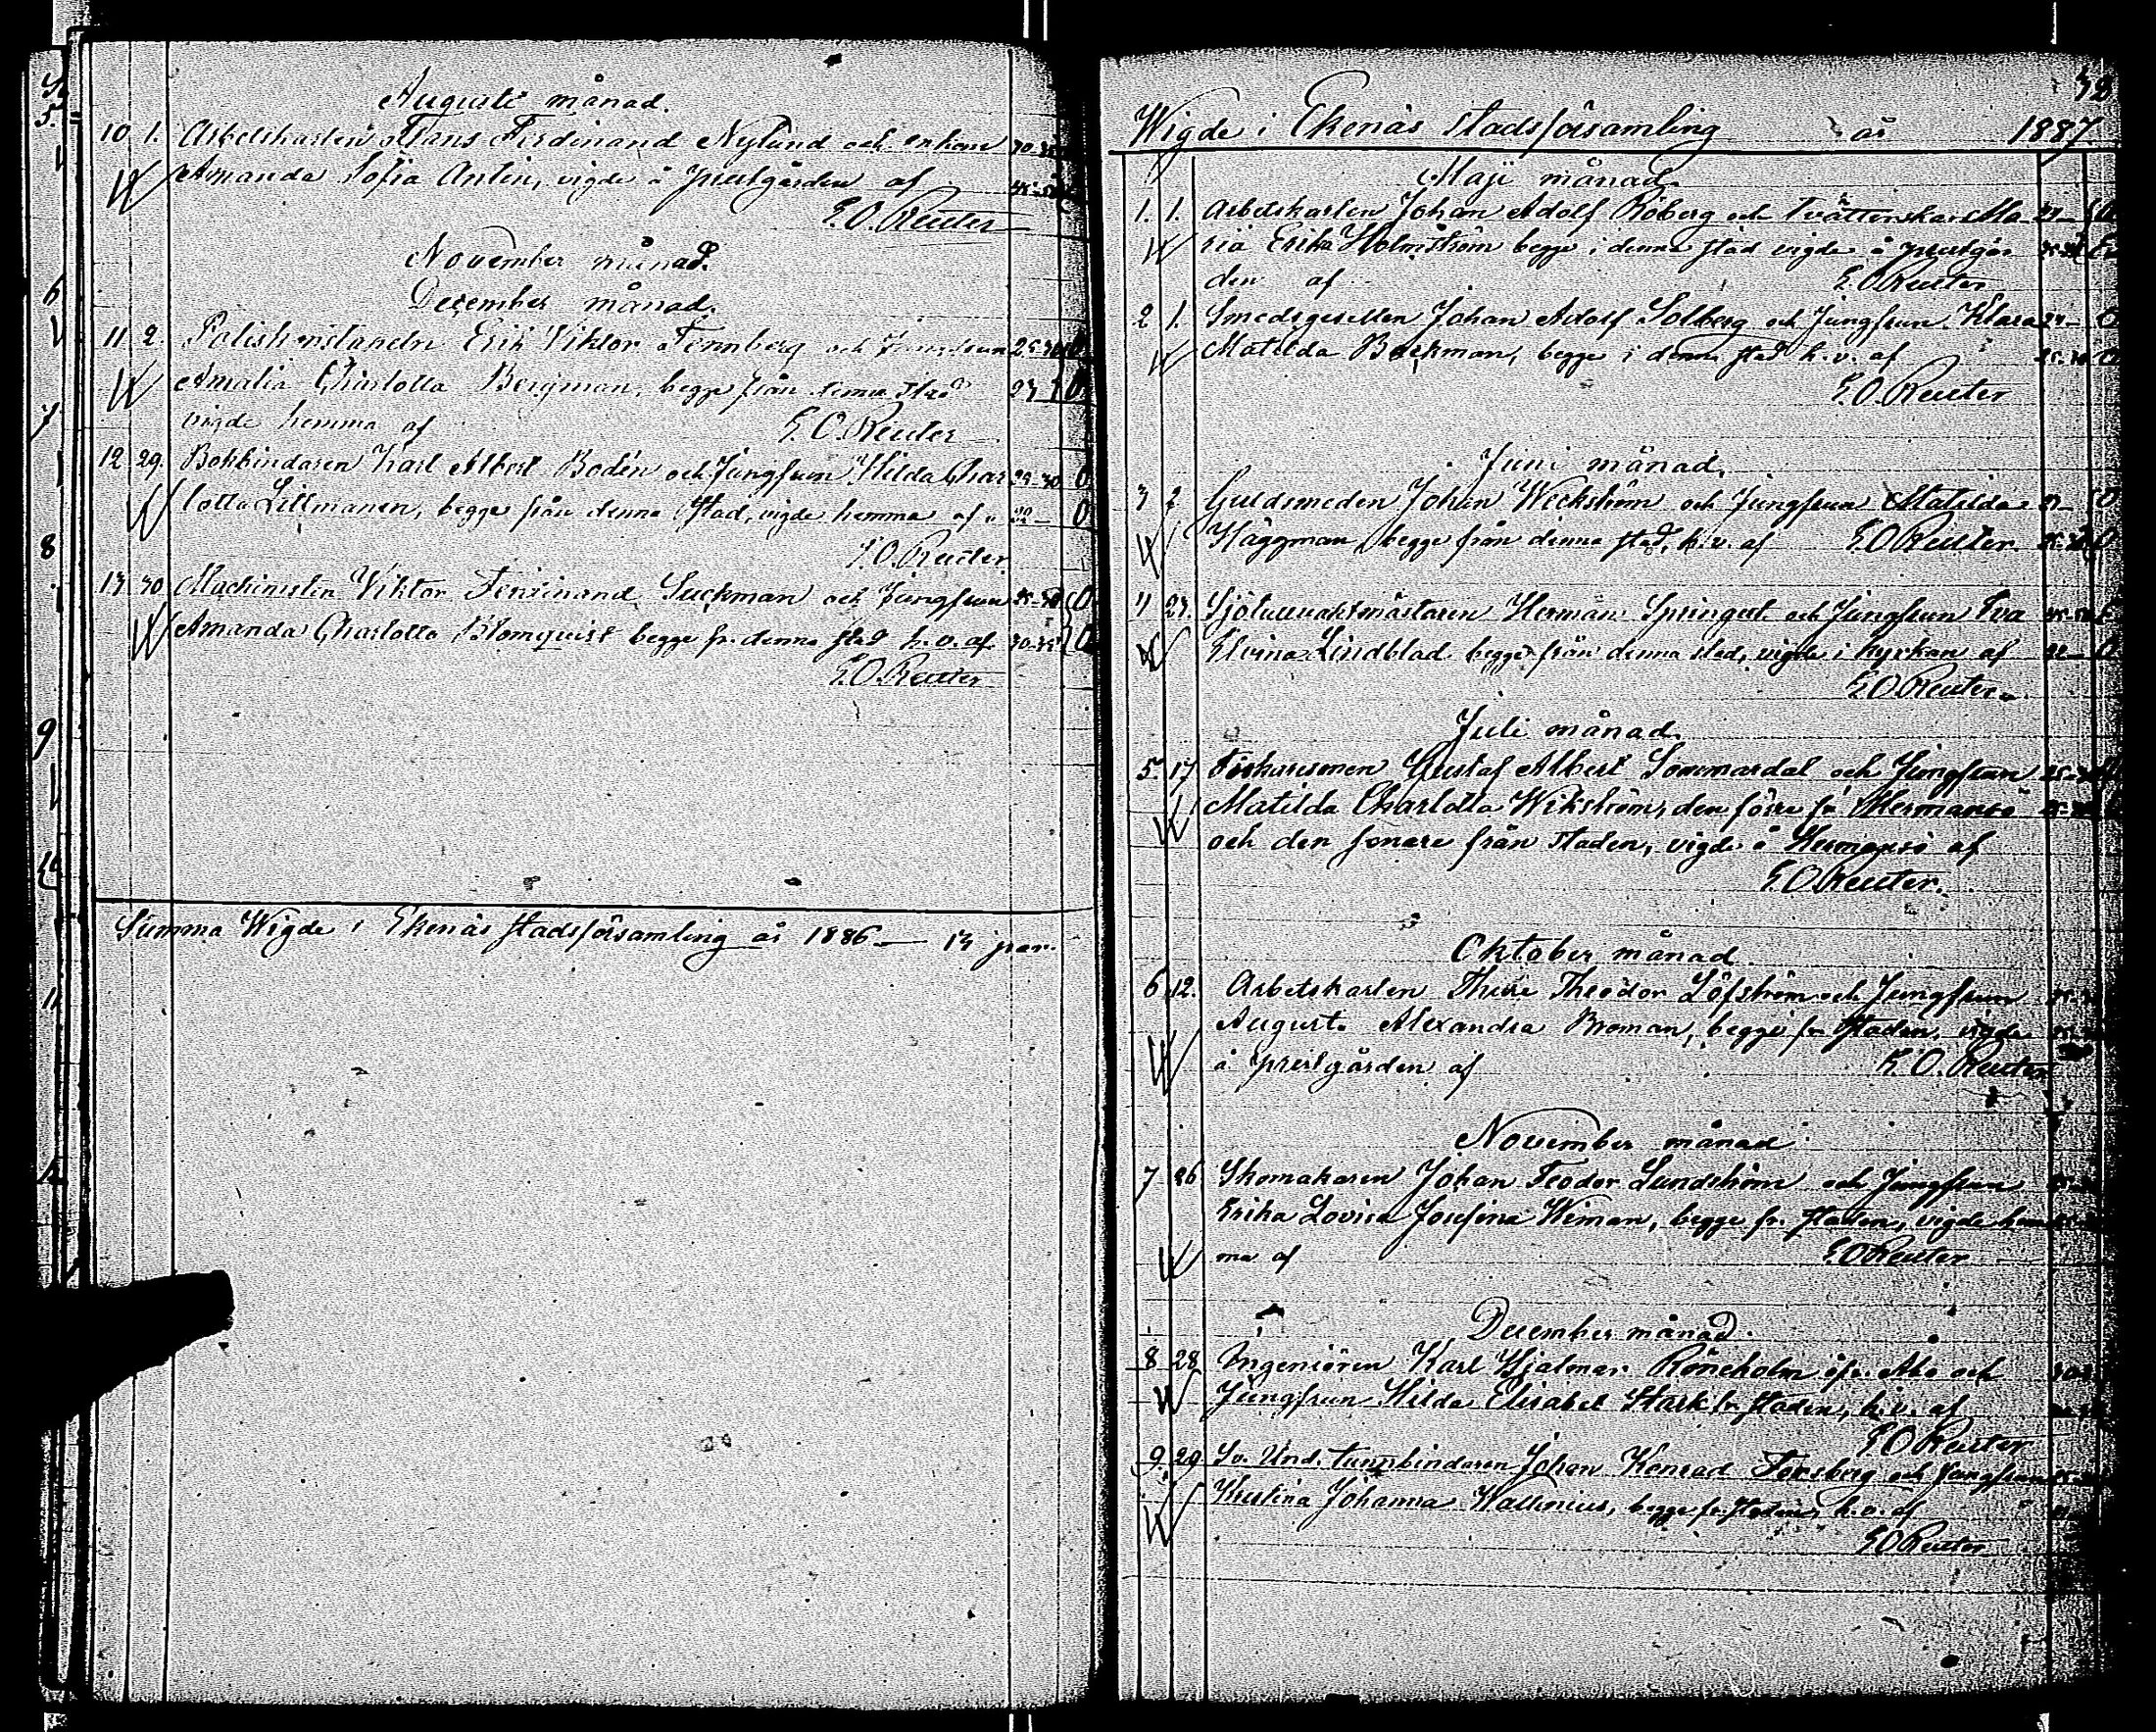 Augusti månad.
10 1. Arbetskarlen Frans Ferdinand Nylund och enkan
Amanda Sofia Antin, vigde å prestgården af
E.O. Reuter
November månad.
December månad.
11 2. Poliskonstapeln Erik Viktor Fennberg och Jungfrun 25-30 0
Amalia Charlotta Bergman, begge från denna stad
vigde hemma af E.O. Reuter
12 29. Bokbindaren Karl Albert Bodén och Jungfrun Hilda Char 0
lotta Littmanen, begge från denna stad, vigde hemma af 0
E.O. Reuter
13 30 Machinisten Viktor Ferdinand Suckman och Jungfrun 0
Amanda Charlotta Blomquist begge fr. denna stad h.v. af 30-35 0
E.O. Reuter
Summa Wigde i Ekenäs stadsförsamling år 1886 — 13 par.
Wigde i Ekenäs stadsförsamling år 1887
Maji månad.
1. 1. Arbetskarlen Johan Adolf Röberg och Tvätterskan Ma
ria Erika Holmström begge i denna stad vigde å prestgår
den af E.O. Reuter
2 1. Smedsgesellen Johan Adolf Solberg och Jungfrun Klara
Matilda Backman, begge i denna stad h.v. af
E.O. Reuter
Juni månad.
3 2 Guldsmeden Johan Weckström och Jungfrun Matilda
Häggman, begge från denna stad, h.v. af E.O. Reuter
4 Sjötullvaktmästaren Herman Springert och Jungfrun Eva
Elvina Lindblad begge från denna stad, vigde i kyrkan af 22
E.O. Reuter
Juli månad.
5. 17 Gustaf Albert Sommardal och Jungfrun
Matilda Charlotta Wikström, den förre fr. Hermansö
och den senare från staden, vigde å Hermansö af
E.O. Reuter.
Oktober månad
6 12. Arbetskarlen Theodor Löfström och Jungfrun
Augusta Alexandra Broman, begge fr. staden, vigde
å prestgården af E.O. Reuter
November månad
7 26 Skomakaren Johan Teodor Lundström och Jungfrun
Erika Lovisa Josefina Wiman, begge fr. staden, vigde hem
ma af E.O. Reuter
December månad.
8 28 Ingeniören Karl Hjalmar Röneholm fr. Åbo och
Jungfrun Hilda Elisabet Stark fr. staden, h.v. af
E.O. Reuter
9. 29 Sv. Und. tunnbindaren Johan Konrad Forsberg och Jungfrun
Kristina Johanna Wallenius, begge fr. staden, h.v. af
E.O. Reuter